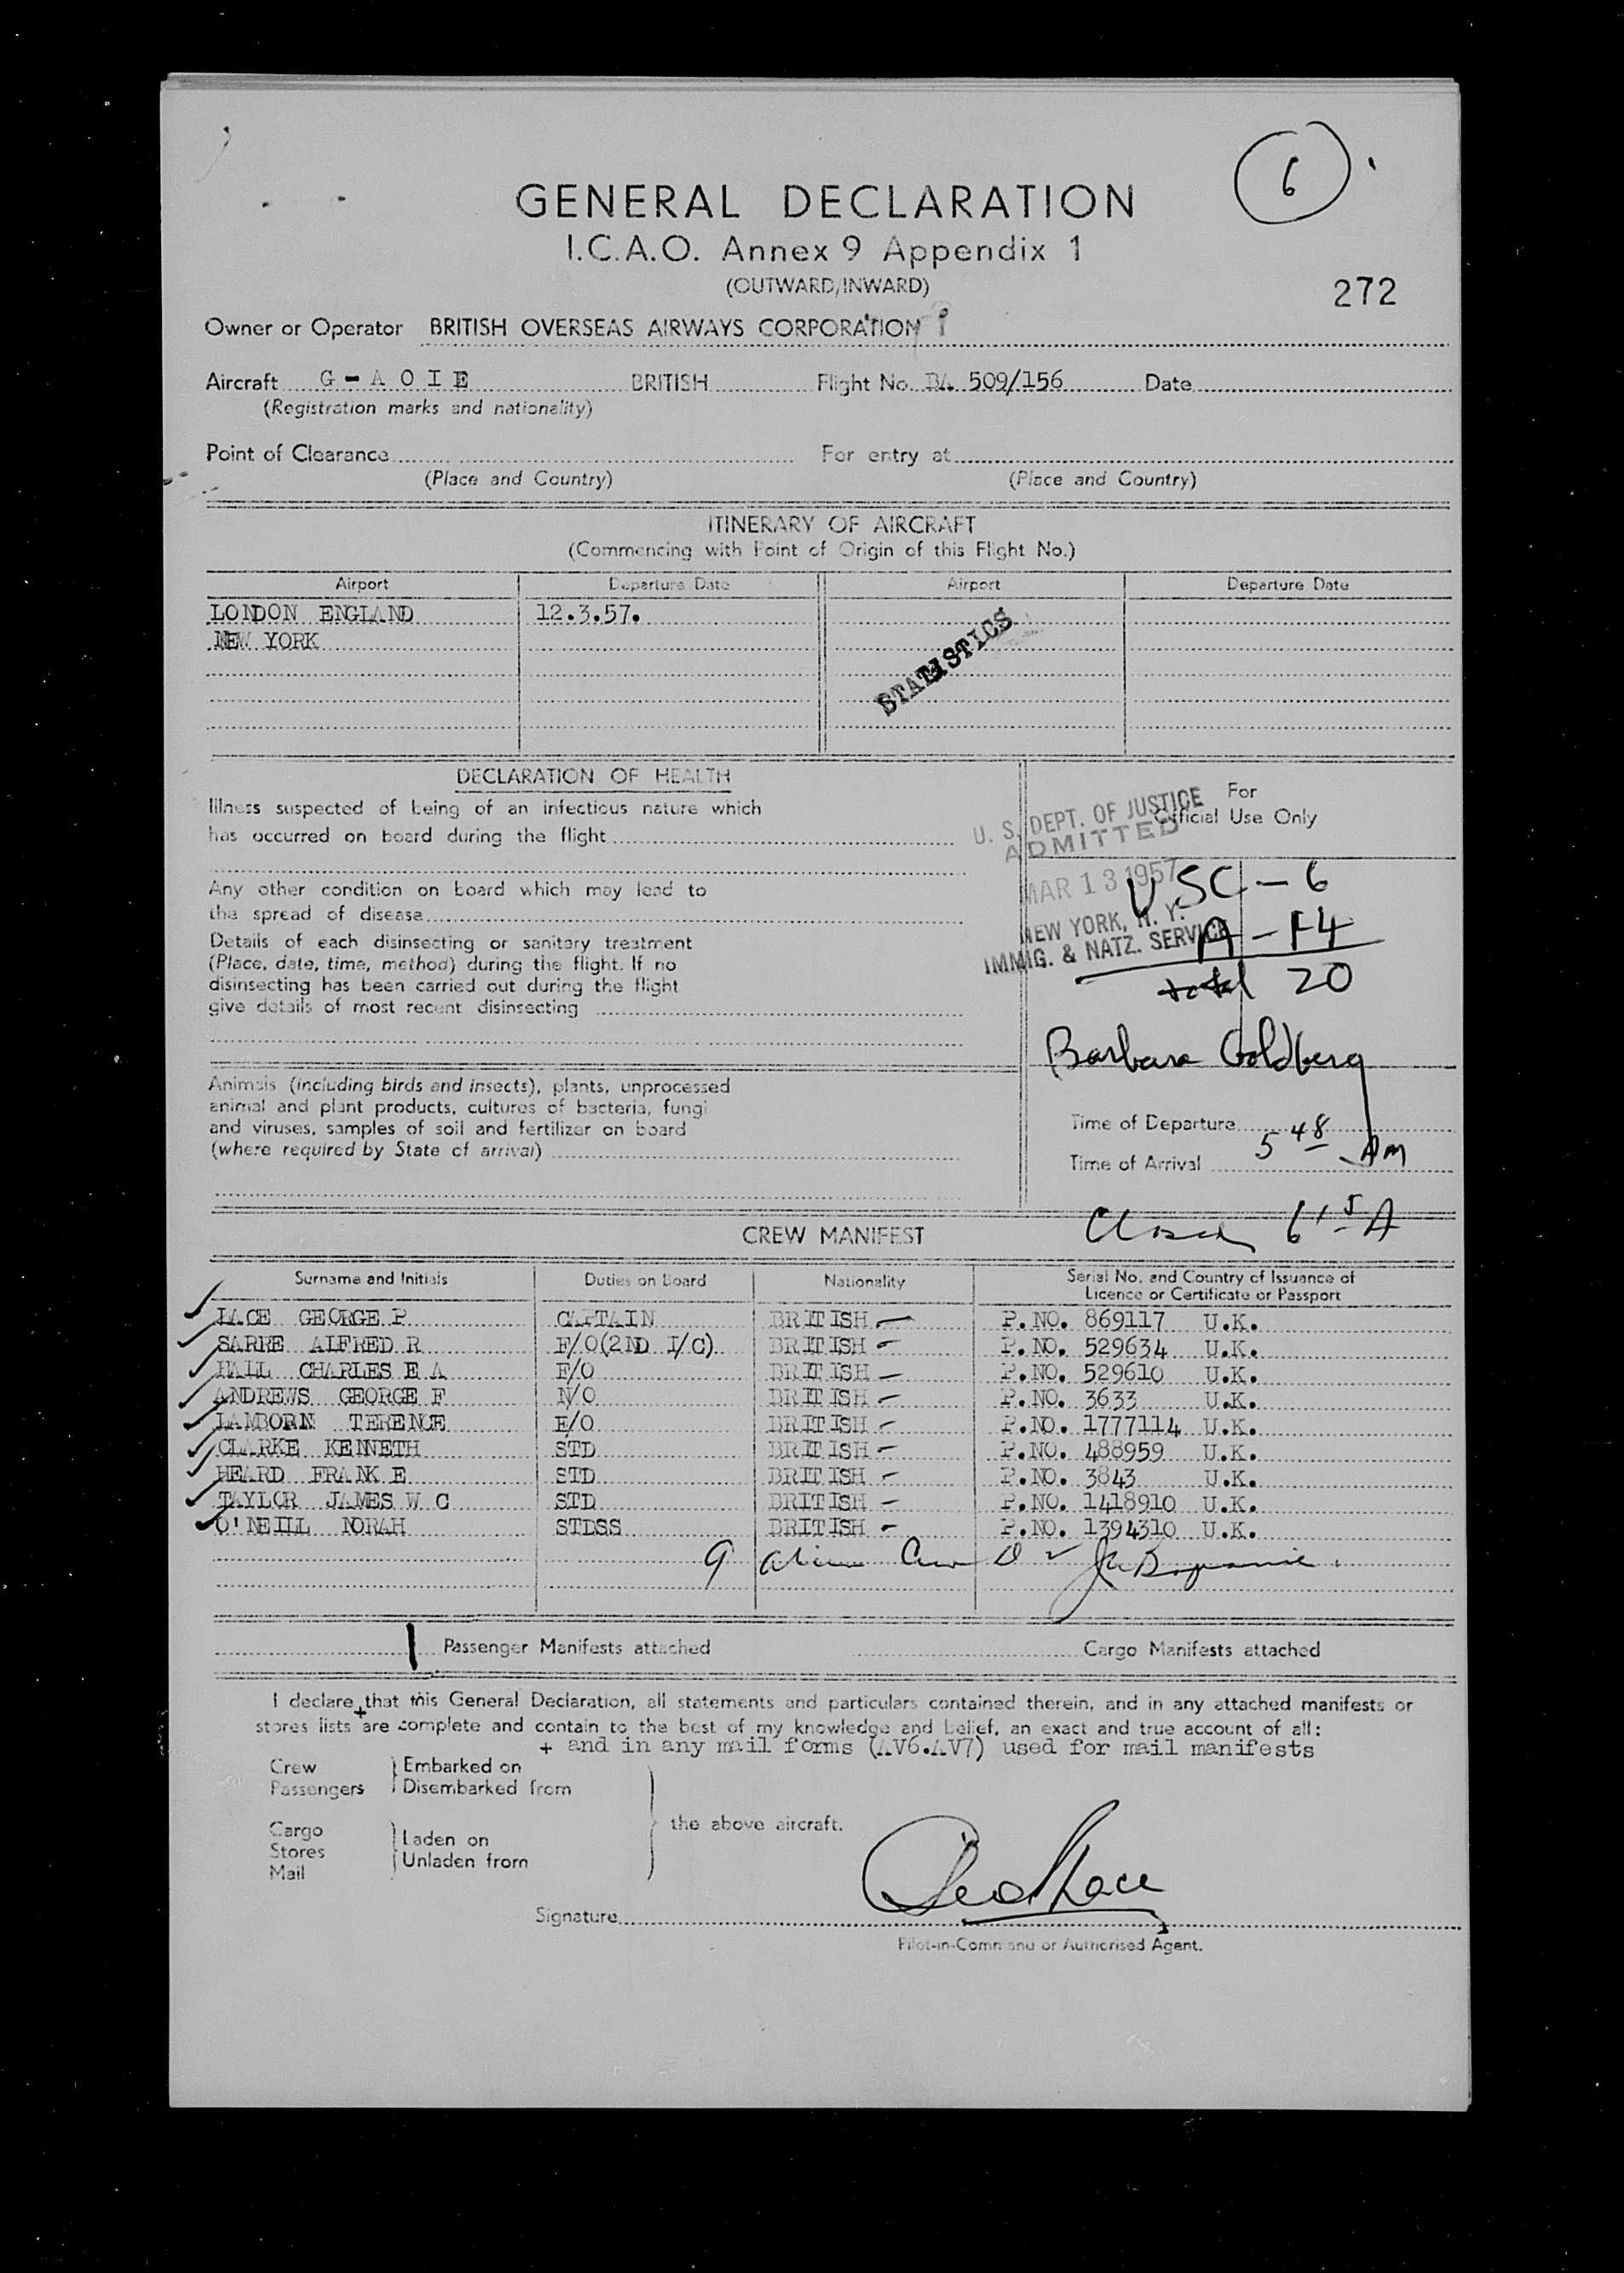 6
GENERAL DECLARATION
I.C.A.O. Annex 9 Appendix 1
(OUTWARD/INWARD)
272
Owner or Operator BRITISH OVERSEAS AIRWAYS CORPORATION
Aircraft G-AOIE BRITISH Flight No. BA. 509/156 Date
(Registration marks and nationality)
Point of Clearance For entry at
(Place and Country) (Place and Country)
ITINERARY OF AIRCRAFT
(Commencing with Point of Origin of this Flight No.)
Airport Departure Date Airport Departure Date
LONDON ENGLAND 12.3.57.
NEW YORK
STATISTICS
DECLARATION OF HEALTH
Illness suspected of being of an infectious nature which
has occurred on board during the flight
Any other condition on board which may lead to
the spread of disease
Details of each disinsecting or sanitary treatment
(Place, date, time, method) during the flight. If no
disinsecting has been carried out during the flight
give details of most recent disinsecting
Animals (including birds and insects), plants, unprocessed
animal and plant products, cultures of bacteria, fungi
and viruses, samples of soil and fertilizer on board
(where required by State of arrival)
For
Official Use Only
U. S. DEPT. OF JUSTICE
ADMITTED
MAR 13 1957
NEW YORK, N. Y.
IMMIG. & NATZ. SERVICE
USC - 6
A - 14
total 20
Barbara Goldberg
Time of Departure
Time of Arrival 5 48 AM
Closed 6 15 A
CREW MANIFEST
Surname and Initials Duties on Board Nationality Serial No. and Country of Issuance of
Licence or Certificate or Passport
LACE GEORGE P CAPTAIN BRITISH P.NO. 869117 U.K.
SARRE ALFRED R F/O(2ND I/C) BRITISH P.NO. 529634 U.K.
HALL CHARLES E A F/O BRITISH P.NO. 529610 U.K.
ANDREWS GEORGE F N/O BRITISH P.NO. 3633 U.K.
LAMBORN TERENCE E/O BRITISH P.NO. 1777114 U.K.
CLARKE KENNETH STD BRITISH P.NO. 488959 U.K.
HEARD FRANK E STD BRITISH P.NO. 3843 U.K.
TAYLOR JAMES W C STD BRITISH P.NO. 1418910 U.K.
O'NEILL NORAH STDSS BRITISH P.NO. 1394310 U.K.
9 alien Crew
1 Passenger Manifests attached Cargo Manifests attached
I declare that this General Declaration, all statements and particulars contained therein, and in any attached manifests or
stores lists + are complete and contain to the best of my knowledge and belief, an exact and true account of all:
+ and in any mail forms (AV6.AV7) used for mail manifests
Crew Embarked on
Passengers Disembarked from
the above aircraft.
Cargo
Stores
Mail
Laden on
Unladen from
Signature Geo P Lace
Pilot-in-Command or Authorised Agent.